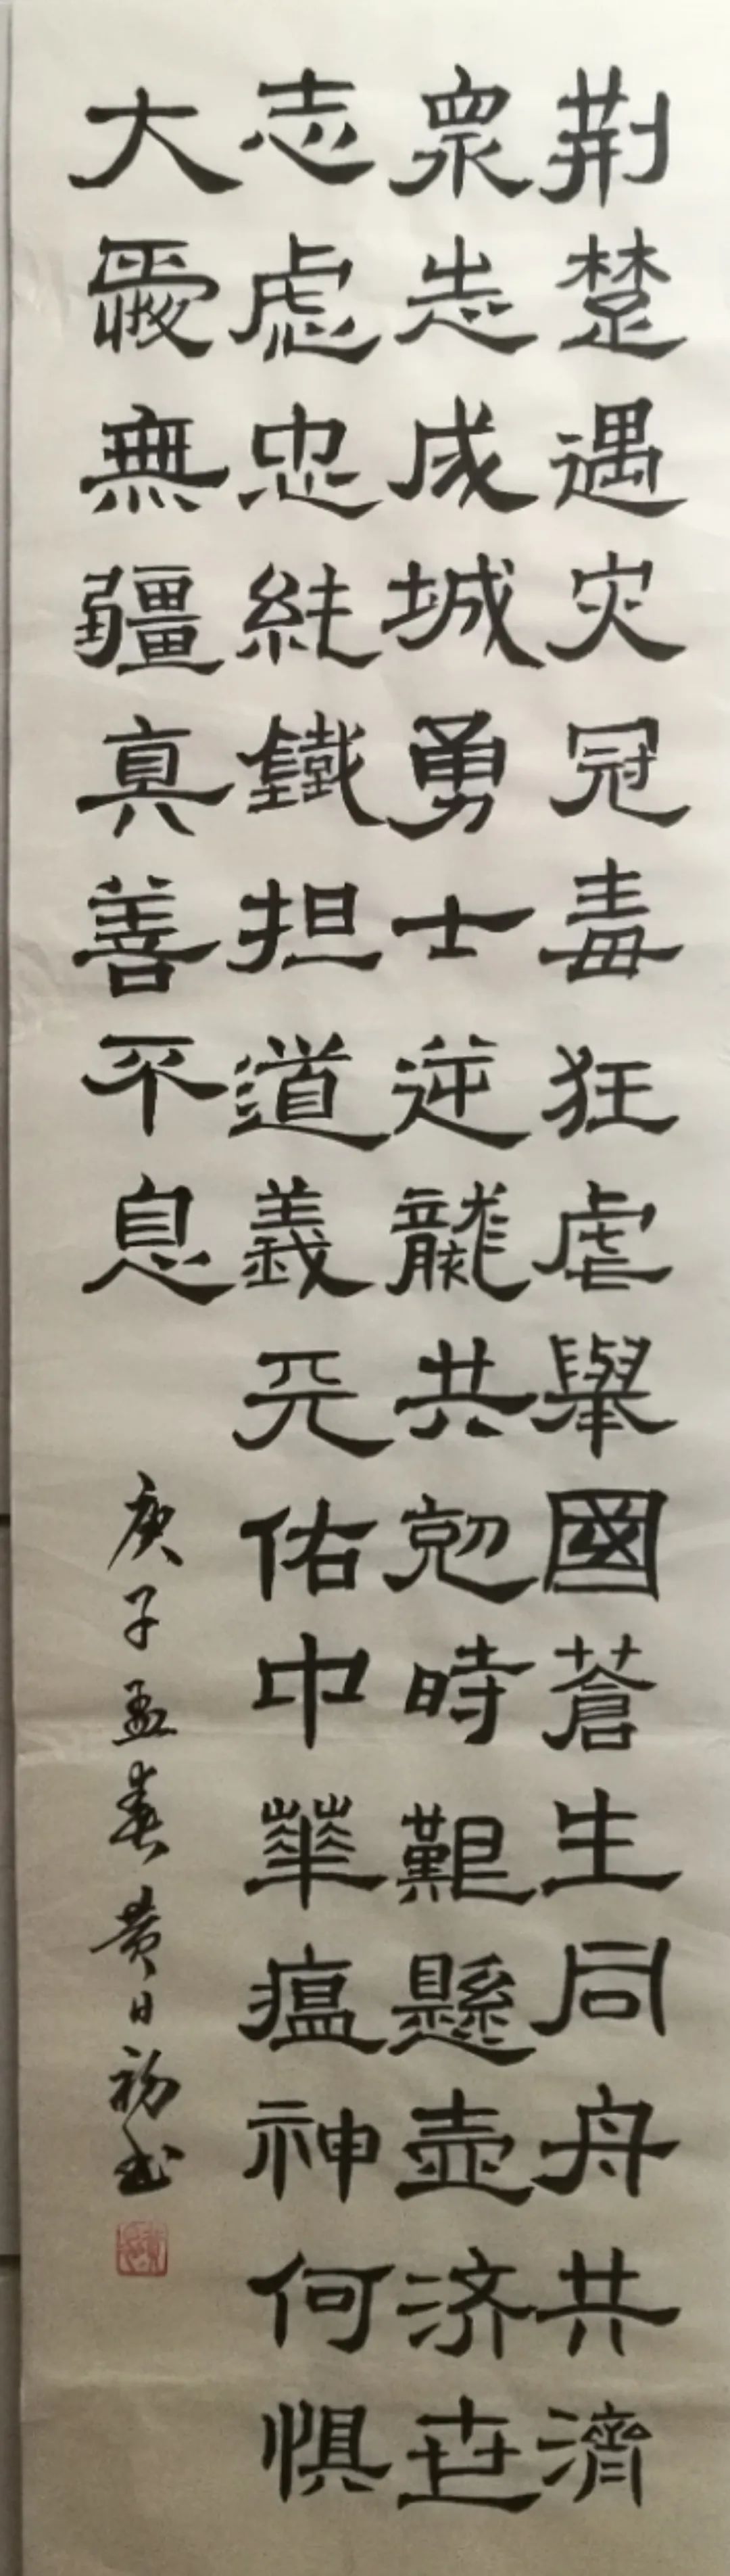 荆楚遇灾冠毒狂虐舉國蒼生同舟共濟
衆志成城勇士逆龍共剋時艱懸壺济世
志慮忠純鐵担道義天佑中華瘟神何惧
大愛無疆真善不息
庚子孟春黄日初书